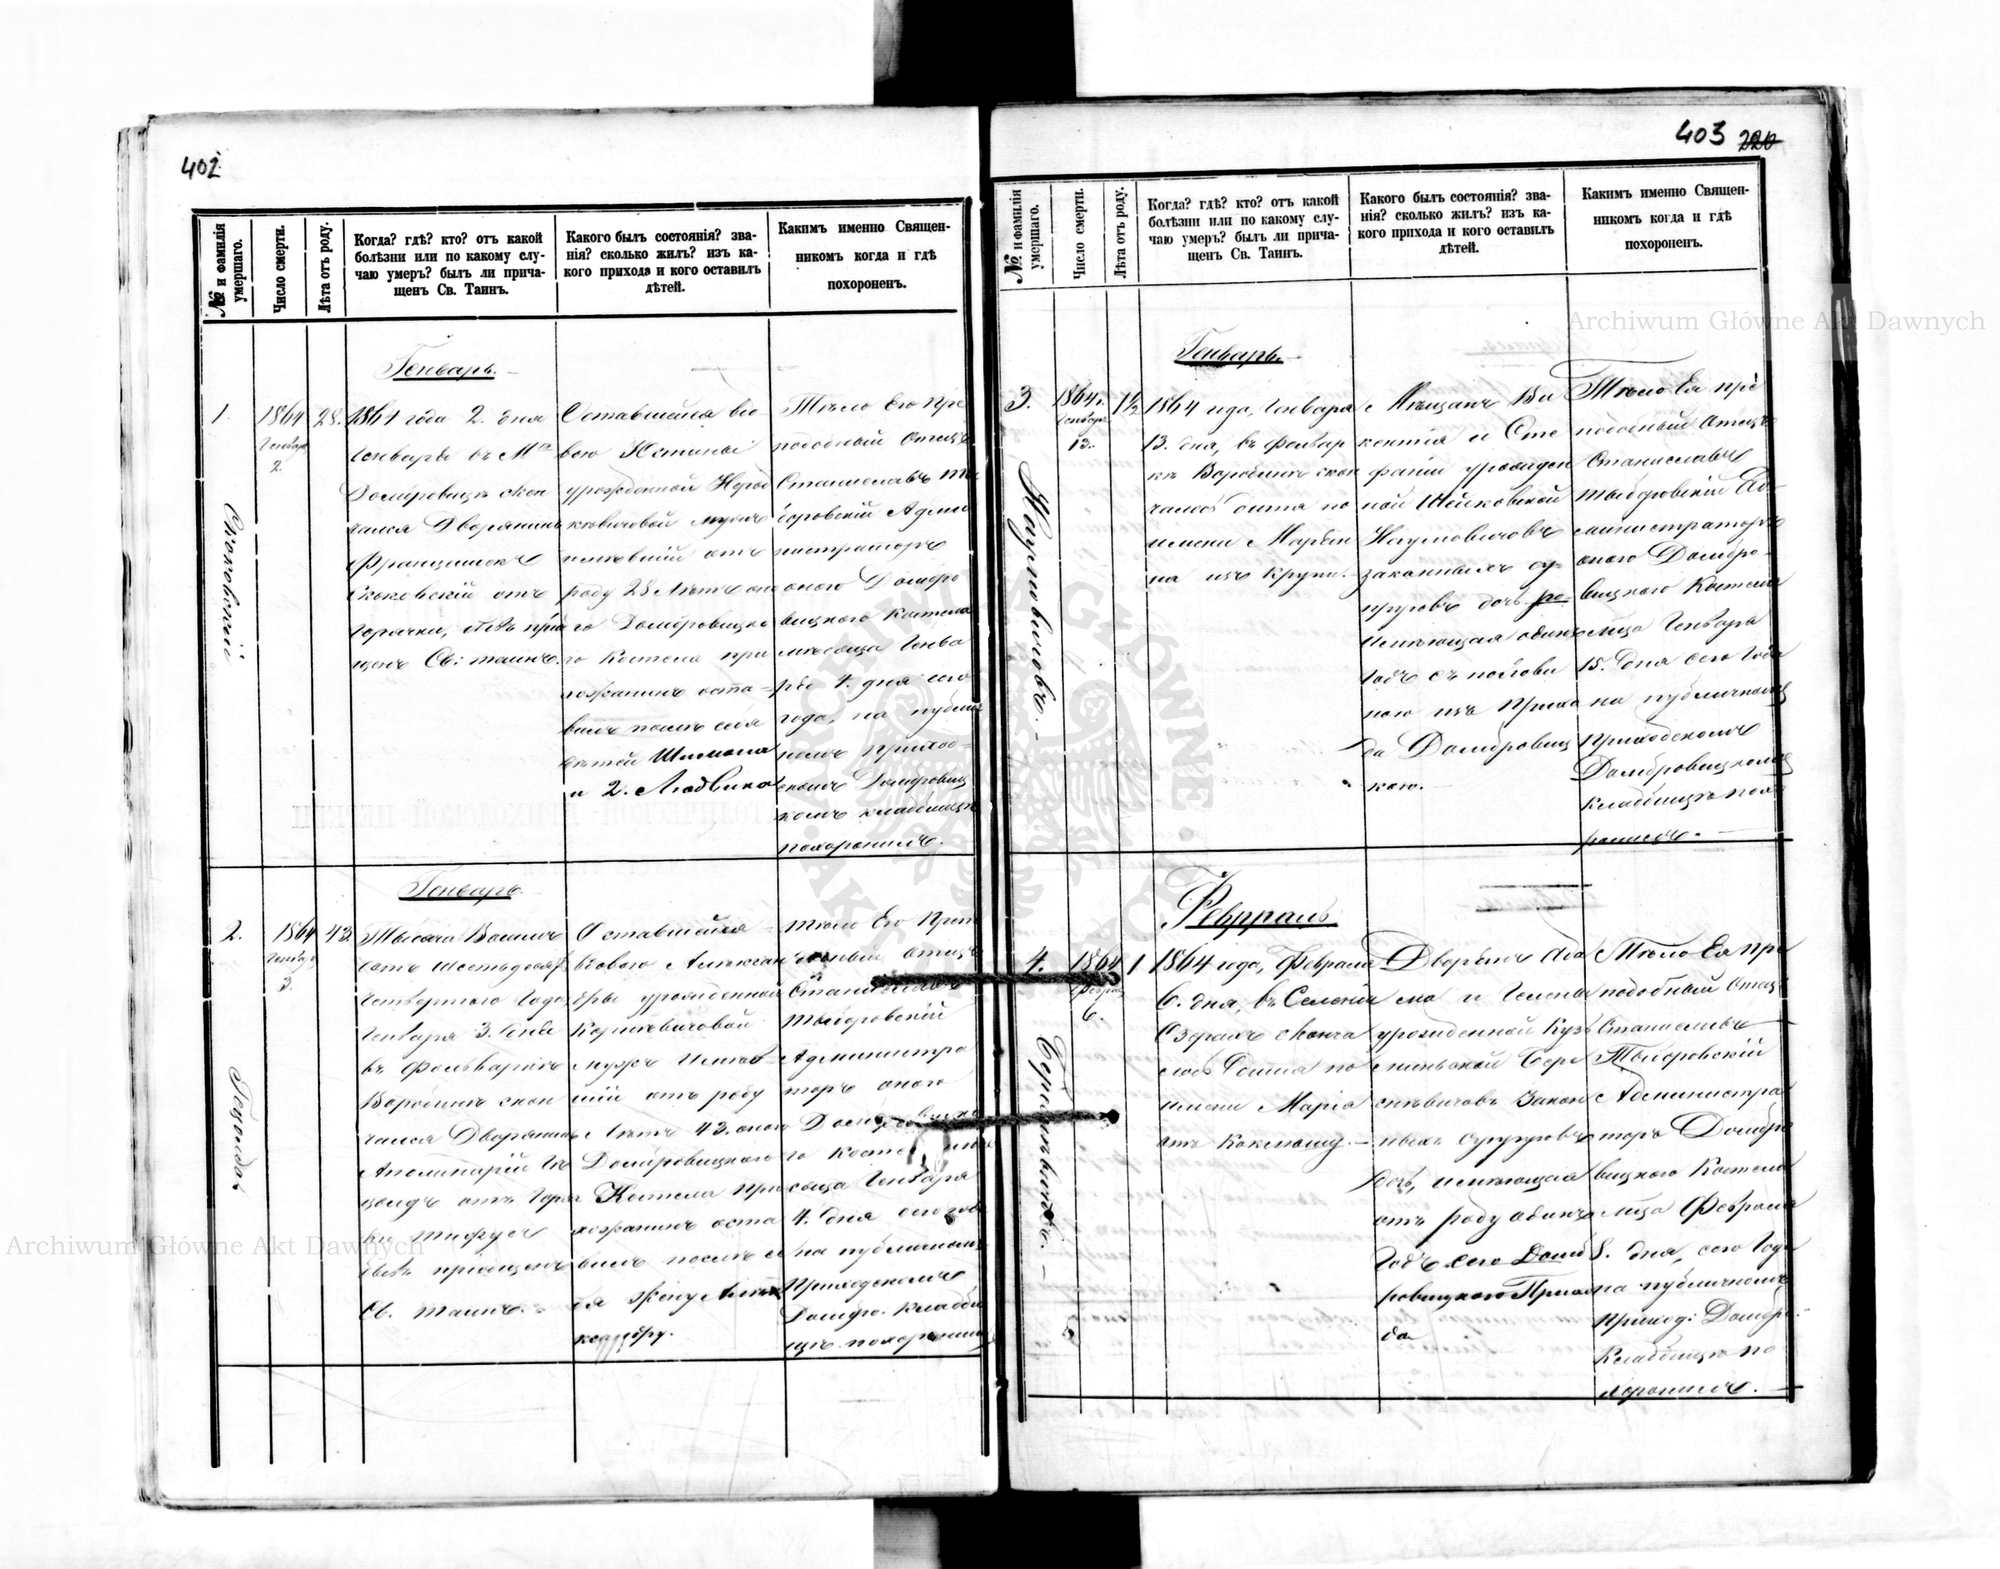 402
№ и фамилія умершаго.
Число смерти.
Лѣта отъ роду.
Когда? гдѣ? кто? отъ какой
болѣзни или по какому слу-
чаю умеръ? былъ ли прича-
щенъ Св. Таинъ.
Какого былъ состоянія? зва-
нія? сколько жилъ? изъ ка-
кого прихода и кого оставилъ
дѣтей.
Какимъ именно Священ-
никомъ когда и гдѣ
похороненъ.
Генварь.
1.
1864
Генваря
2.
28.
Скоковскій
1864 года 2. дня
Генваря въ М
Домбровицѣ скон
чался Дворянинъ
Францишекъ
Скоковскій отъ
горячки,
щенъ Св: таинъ.
Оставшейся вдо
вою Юстины
урожденной
мужъ
имѣвшій отъ
роду 28 лѣтъ
го Домбровицка
го Костела при
хожанинъ оста-
вилъ послѣ себя
дѣтей Шимона
и 2. Людвика
Тѣло Его Пре
подобный Отецъ
Станиславъ Ты
боровскій Адми
нистраторъ
оного Домбро
вицкого Костела
мѣсяца Генва
ря 4. дня сего
года, на публич
номъ Приход-
скомъ Домбровиц
комъ кладбищѣ
похоронилъ.
Генварь.
2.
1864
Генваря
3.
43.
Гецольдъ
Тысяча Восемь
сотъ шестьдесят
четвертого Года
Генваря 3. дня
въ Фольваркѣ
Воробинѣ скон
чался Дворянинъ
Аполинарій Ге
цольдъ отъ Горяч
ки тифусъ
бывъ пріощенъ
Св. таинъ.
Оставшейся
вдовою Алексан
дры урожденной
мужъ имѣв
шій отъ роду
Лѣтъ 43. оного
Домбровицкого
Костела при
хожанинъ оста
вилъ послѣ се
бя жену Алек
ксандру.
Тѣло Его Преп
добный отецъ
Станиславъ
Тыборовскій
Администра
торъ оного
Домбровицка
го Костела
сяца Генваря
4. дня сего года
на публичномъ
Приходскомъ
Домбро: кладби
щѣ похоронилъ
403 220
№ и фамилія умершаго.
Число смерти.
Лѣта отъ роду.
Когда? гдѣ? кто? отъ какой
болѣзни или по какому слу-
чаю умеръ? былъ ли прича-
щенъ Св. Таинъ.
Какого былъ состоянія? зва-
нія? сколько жилъ? изъ ка-
кого прихода и кого оставилъ
дѣтей.
Какимъ именно Священ-
никомъ когда и гдѣ
похороненъ.
Генварь.
3.
1864 г.
Генваря
13.
1½
Наумовичовъ.
1864 года, Генваря
13. дня, въ Фольвар
кѣ Воробинѣ скон
чалось дитя по
имени Марьян
на изъ крупи.
Мѣщанъ Ви
кентія и Сте
фаніи урожден
ной Шейковской
Наумовичовъ
законныхъ су-
пруговъ дочь
имѣющая одинъ
Годъ съ полови
ною изъ Прихо
да Домбровиц
кого.
Тѣло Ея пре
подобный Отецъ
Станиславъ
Тыборовскій Ад-
министраторъ
оного Домбро-
вицкого Костела
м-ца Генваря
15. дня сего Года
на публичномъ
Приходскомъ
Домбровицкомъ
Кладбищѣ похо
ронилъ.
Февраль
4.
1864
Февра
6.
1
1864 года, Февраля
6. дня, въ Селеніи
Озерахъ сконча
лось Дитя по
имени Марія
отъ Коклюшу.
Дворянъ Ада
ма и Гелены
урожденной Куз
миньской
Закон
ныхъ Супруговъ
дочь, имѣющая
отъ роду одинъ
Годъ сего Домб
ровицкого Прихо
да
Тѣло Ея пре
подобный Отецъ
Станиславъ
Тыборовскій
Администра
торъ Домбро
вицкого Костела
м-ца Февраля
8. дня, сего Года
на публичномъ
Приход: Домбро:
Кладбищѣ по
хоронилъ.
Archiwum Główne Akt Dawnych
Archiwum Główne Akt Dawnych